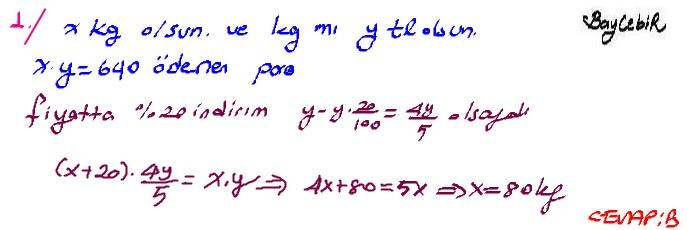 1./ x kg olsun. ve kg mı y tl olsun. BayCebiR
x.y=640 ödenen para
fiyatta %20 indirim y-y.20/100=4y/5 olsaydı
(x+20).4y/5=x.y⇒4x+80=5x⇒x=80kg
CEVAP:B